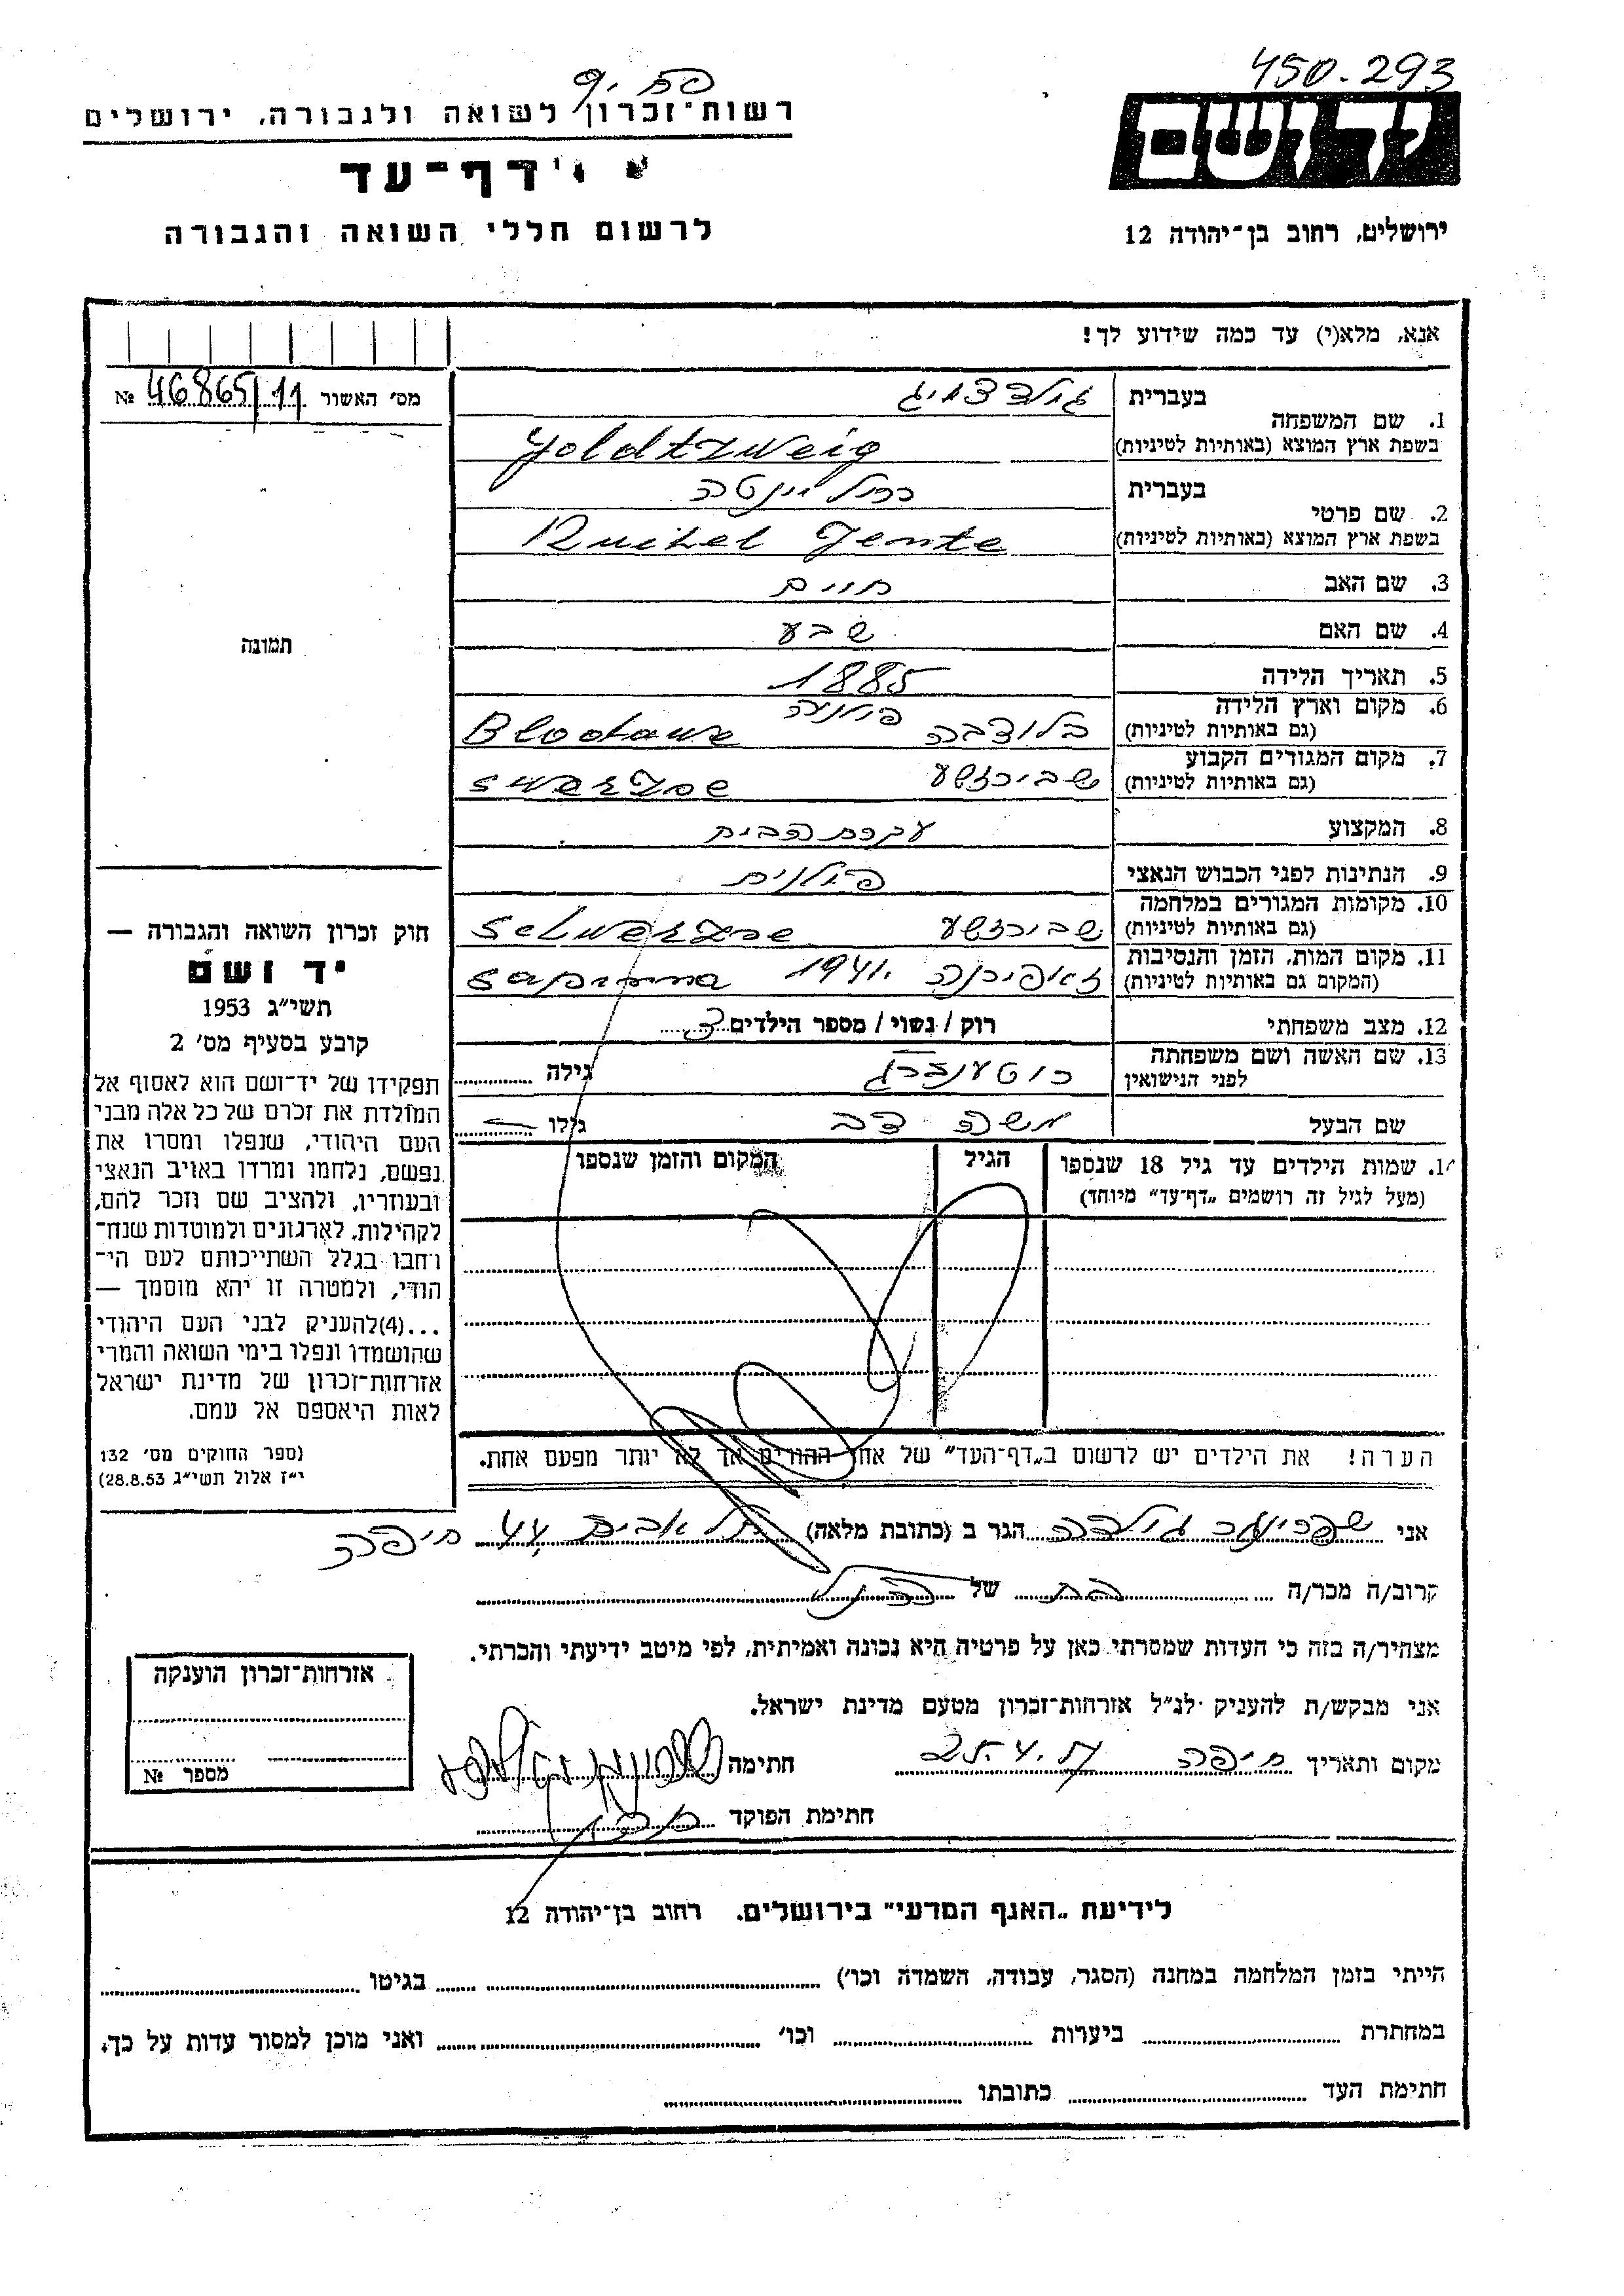 450.293
יד ושם
ירושלים, רחוב בן־יהודה 12
רשות־זכרון לשואה ולגבורה, ירושלים
דף־עד
לרשום חללי השואה והגבורה
אנא, מלא(י) עד כמה שידוע לך!
מס׳ האשור № 46865/11
תמונה
1. שם המשפחה בעברית גולדצויג
בשפת ארץ המוצא (באותיות לטיניות) Goldtzweig
2. שם פרטי בעברית רחל יינטה
בשפת ארץ המוצא (באותיות לטיניות) Ruchel Jente
3. שם האב חיים
4. שם האם שבע
5. תאריך הלידה 1885
6. מקום וארץ הלידה (גם באותיות לטיניות) פולניה
7. מקום המגורים הקבוע (גם באותיות לטיניות)
8. המקצוע עקרת הבית
9. הנתינות לפני הכבוש הנאצי פולנית
10. מקומות המגורים במלחמה (גם באותיות לטיניות)
11. מקום המות, הזמן והנסיבות (המקום גם באותיות לטיניות) 1941
12. מצב משפחתי רוק / נשוי / מספר הילדים 3
13. שם האשה ושם משפחתה לפני הנישואין רוטענברג גילה
שם הבעל משה דב גילו
14. שמות הילדים עד גיל 18 שנספו
(מעל לגיל זה רושמים „דף־עד״ מיוחד)
הגיל
המקום והזמן שנספו
הערה! את הילדים יש לרשום ב„דף־העד״ של אחד ההורים אך לא יותר מפעם אחת.
חוק זכרון השואה והגבורה —
יד ושם
תשי״ג 1953
קובע בסעיף מס׳ 2
תפקידו של יד־ושם הוא לאסוף אל
המולדת את זכרם של כל אלה מבני
העם היהודי, שנפלו ומסרו את
נפשם, נלחמו ומרדו באויב הנאצי
ובעוזריו, ולהציב שם וזכר להם,
לקהילות, לארגונים ולמוסדות שנח־
רחבו בגלל השתייכותם לעם הי־
הודי, ולמטרה זו יהא מוסמך —
...(4)להעניק לבני העם היהודי
שהושמדו ונפלו בימי השואה והמרי
אזרחות־זכרון של מדינת ישראל
לאות היאספם אל עמם.
(ספר החוקים מס׳ 132
י״ז אלול תשי״ג 28.8.53)
אני שפרינגר גולדה הגר ב (כתובת מלאה) תל אביב 44 חיפה
קרוב/ה מכר/ה בת של
מצהיר/ה בזה כי העדות שמסרתי כאן על פרטיה היא נכונה ואמיתית, לפי מיטב ידיעתי והכרתי.
אני מבקש/ת להעניק לנ״ל אזרחות־זכרון מטעם מדינת ישראל.
מקום ותאריך חיפה חתימה
חתימת הפוקד
אזרחות־זכרון הוענקה
מספר №
לידיעת „האגף המדעי״ בירושלים. רחוב בן־יהודה 12
הייתי בזמן המלחמה במחנה (הסגר, עבודה, השמדה וכו׳) בגיטו
במחתרת ביערות וכו׳ ואני מוכן למסור עדות על כך.
חתימת העד כתובתו